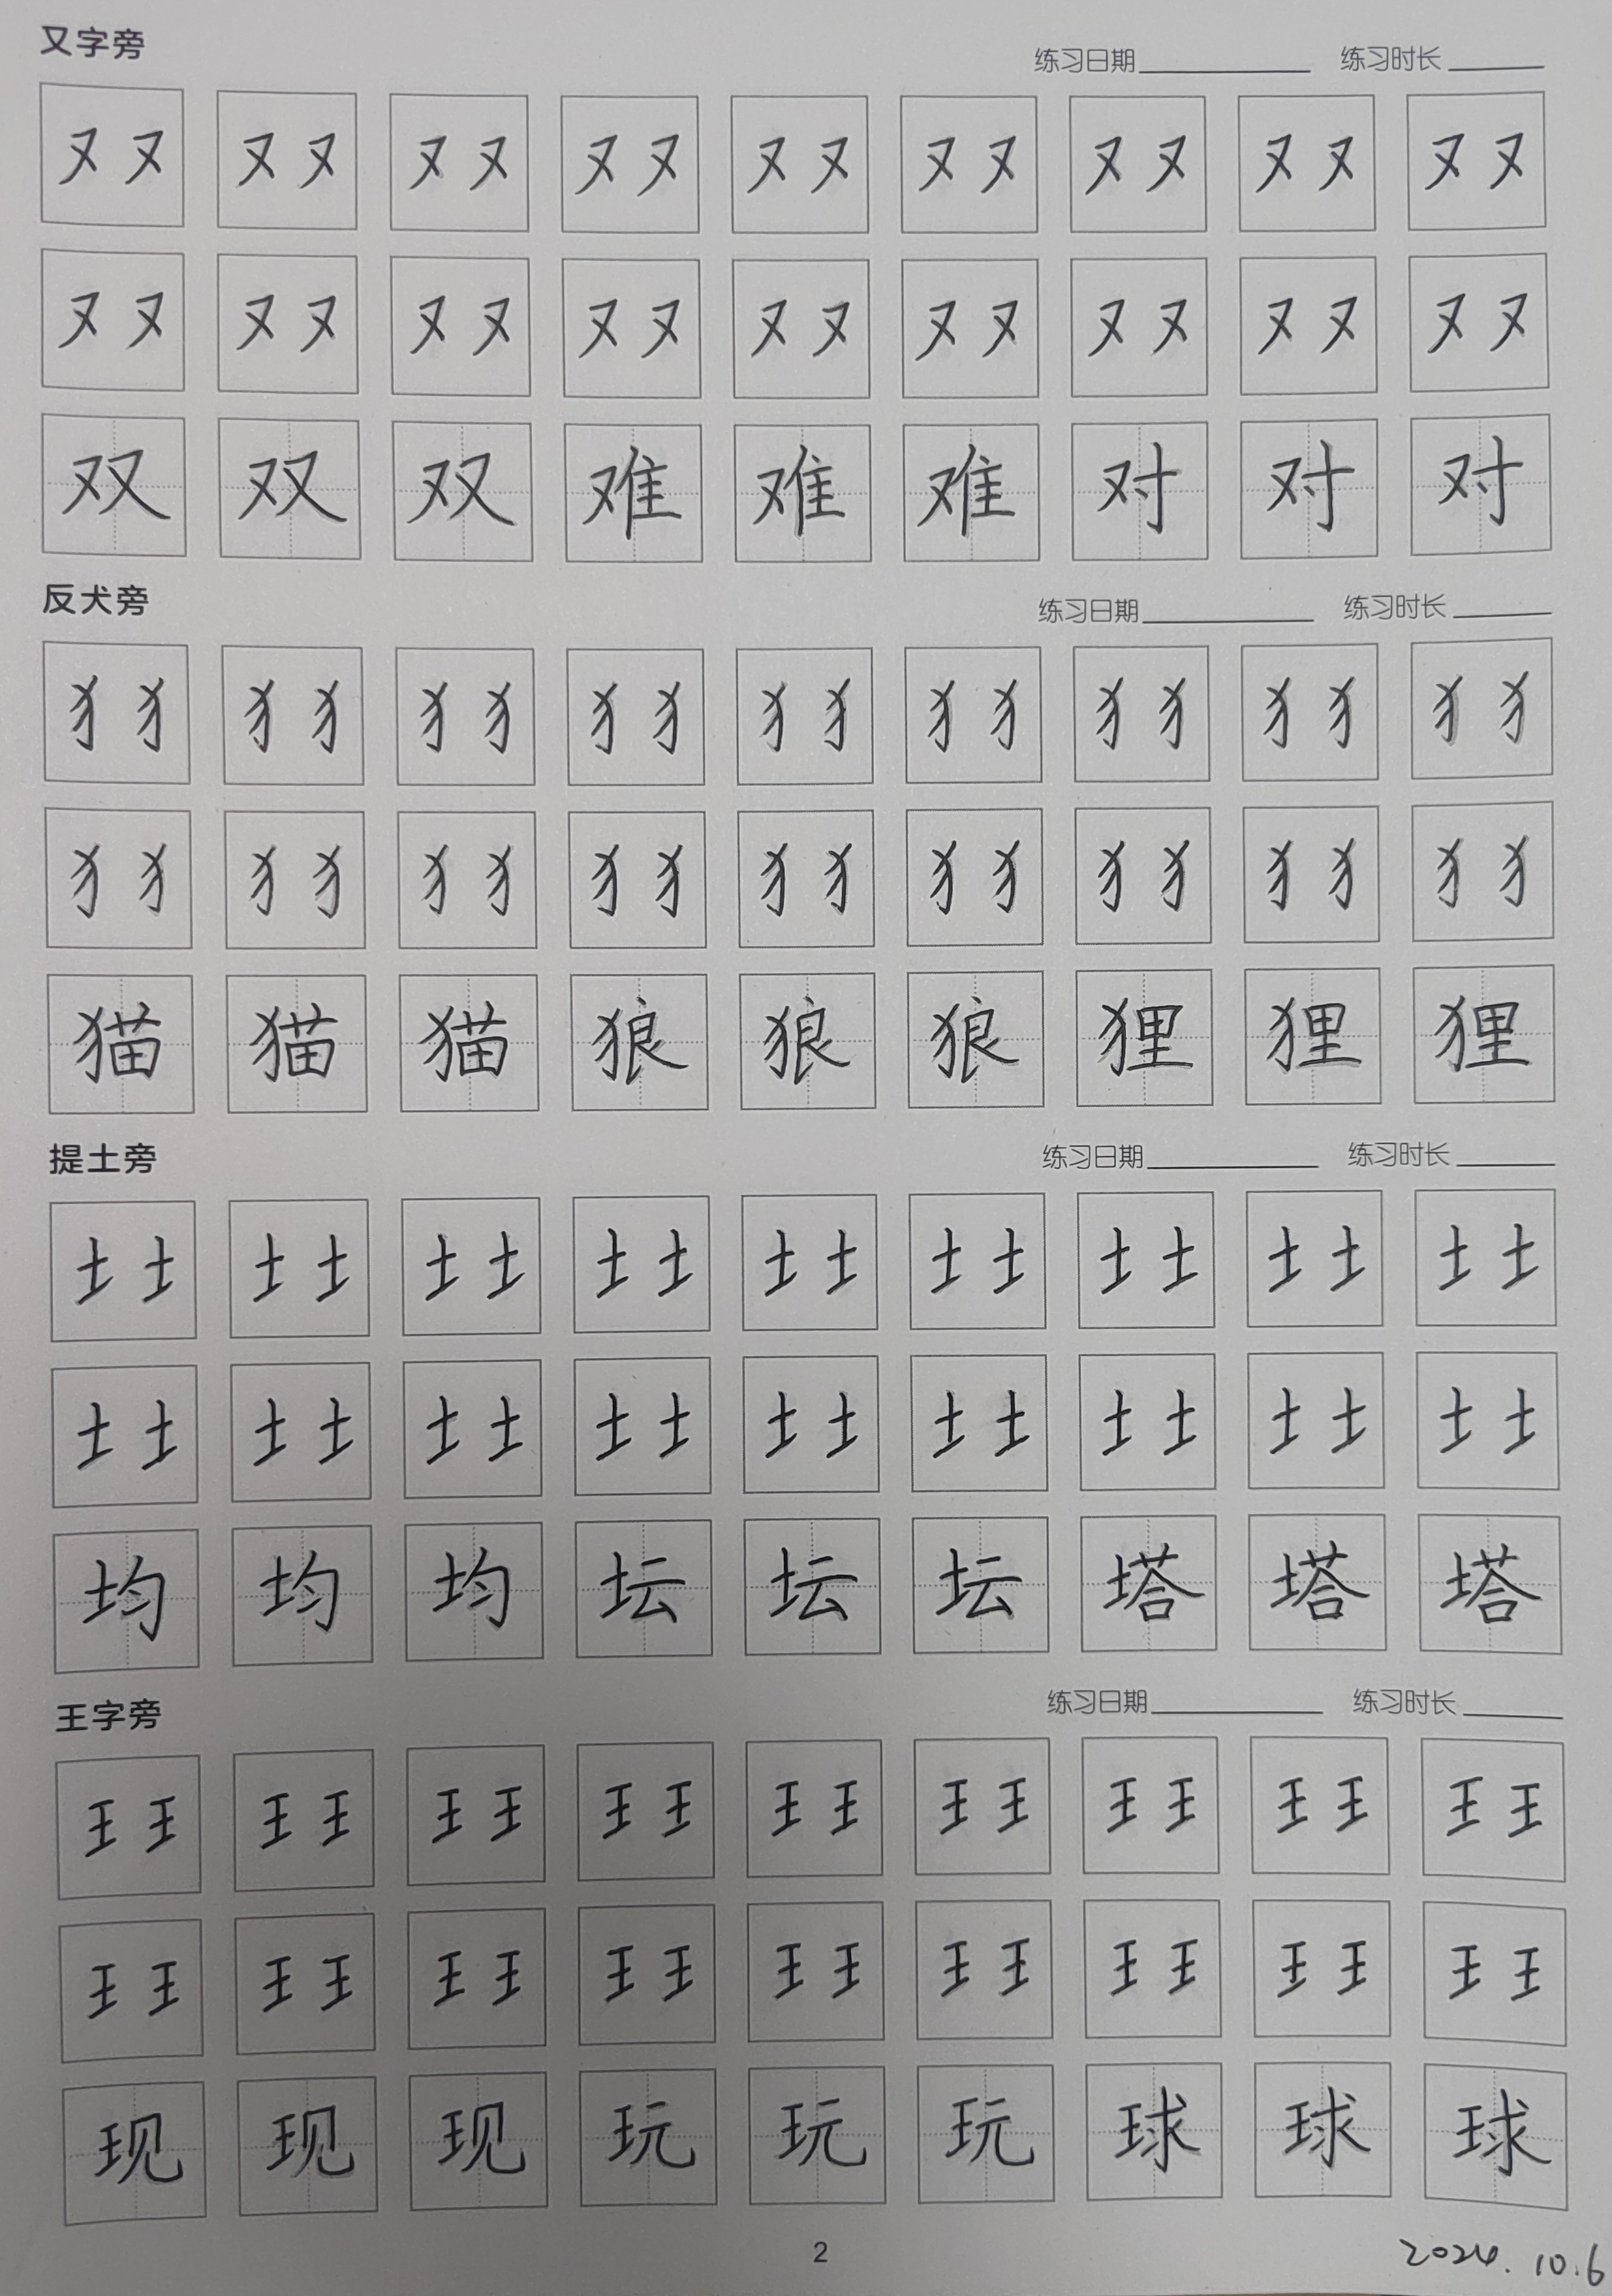 又字旁 练习日期 练习时长
又又 又又 又又 又又 又又 又又 又又 又又 又又
又又 又又 又又 又又 又又 又又 又又 又又 又又
双 双 双 难 难 难 对 对 对
反犬旁 练习日期 练习时长
犭犭 犭犭 犭犭 犭犭 犭犭 犭犭 犭犭 犭犭 犭犭
犭犭 犭犭 犭犭 犭犭 犭犭 犭犭 犭犭 犭犭 犭犭
猫 猫 猫 狼 狼 狼 狸 狸 狸
提土旁 练习日期 练习时长
土土 土土 土土 土土 土土 土土 土土 土土 土土
土土 土土 土土 土土 土土 土土 土土 土土 土土
均 均 均 坛 坛 坛 塔 塔 塔
王字旁 练习日期 练习时长
王王 王王 王王 王王 王王 王王 王王 王王 王王
王王 王王 王王 王王 王王 王王 王王 王王 王王
现 现 现 玩 玩 玩 球 球 球
2
2024.10.6